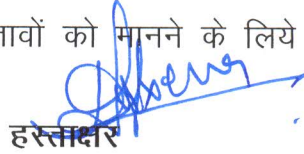 को मानने के लिये
हस्ताक्षर